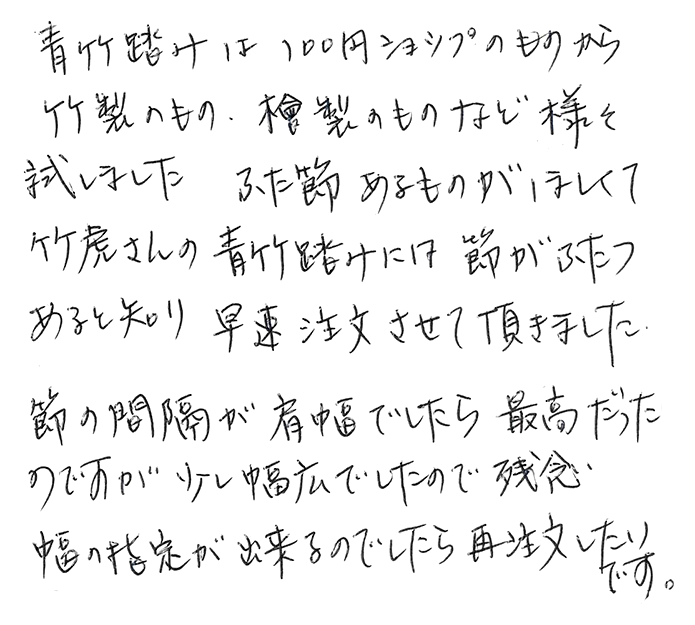 青竹踏みは100円ショップのものから
竹製のもの、檜製のものなど様々
試しました ふた節あるものがほしくて
竹虎さんの青竹踏みには節がふたつ
あると知り 早速注文させて頂きました.
節の間隔が肩幅でしたら最高だった
のですが少し幅広でしたので残念
幅の指定が出来るのでしたら再注文したい
です。